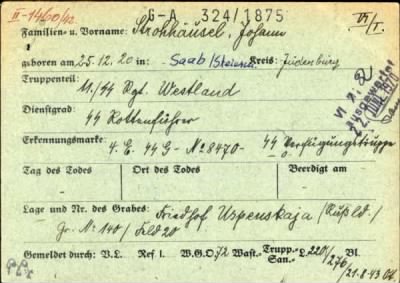 II-1460/42 G-A 324/1875 VI/I.
Familien- u. Vorname: Strohhäusel, Johann
geboren am 25.12.20 in: Saab/Steierm. Kreis: Judenburg
Truppenteil: 11./SS Rgt. Westland
Dienstgrad: SS Rottenführer
Erkennungsmarke: 4. E. SS G - No 8470 - SS Verfügungstruppe
Tag des Todes Ort des Todes Beerdigt am
- - -
Lage und Nr. des Grabes: Friedhof Uspenskaja (Rußld.)
Gr. No 140 / Feld 20
Gemeldet durch: V.L. Ref I. W.G.O. 72 Wast.- Trupp.- San.- L. 220/276 Bl.
21.8.43
VI 7, a)
ausgewertet
22. 1970